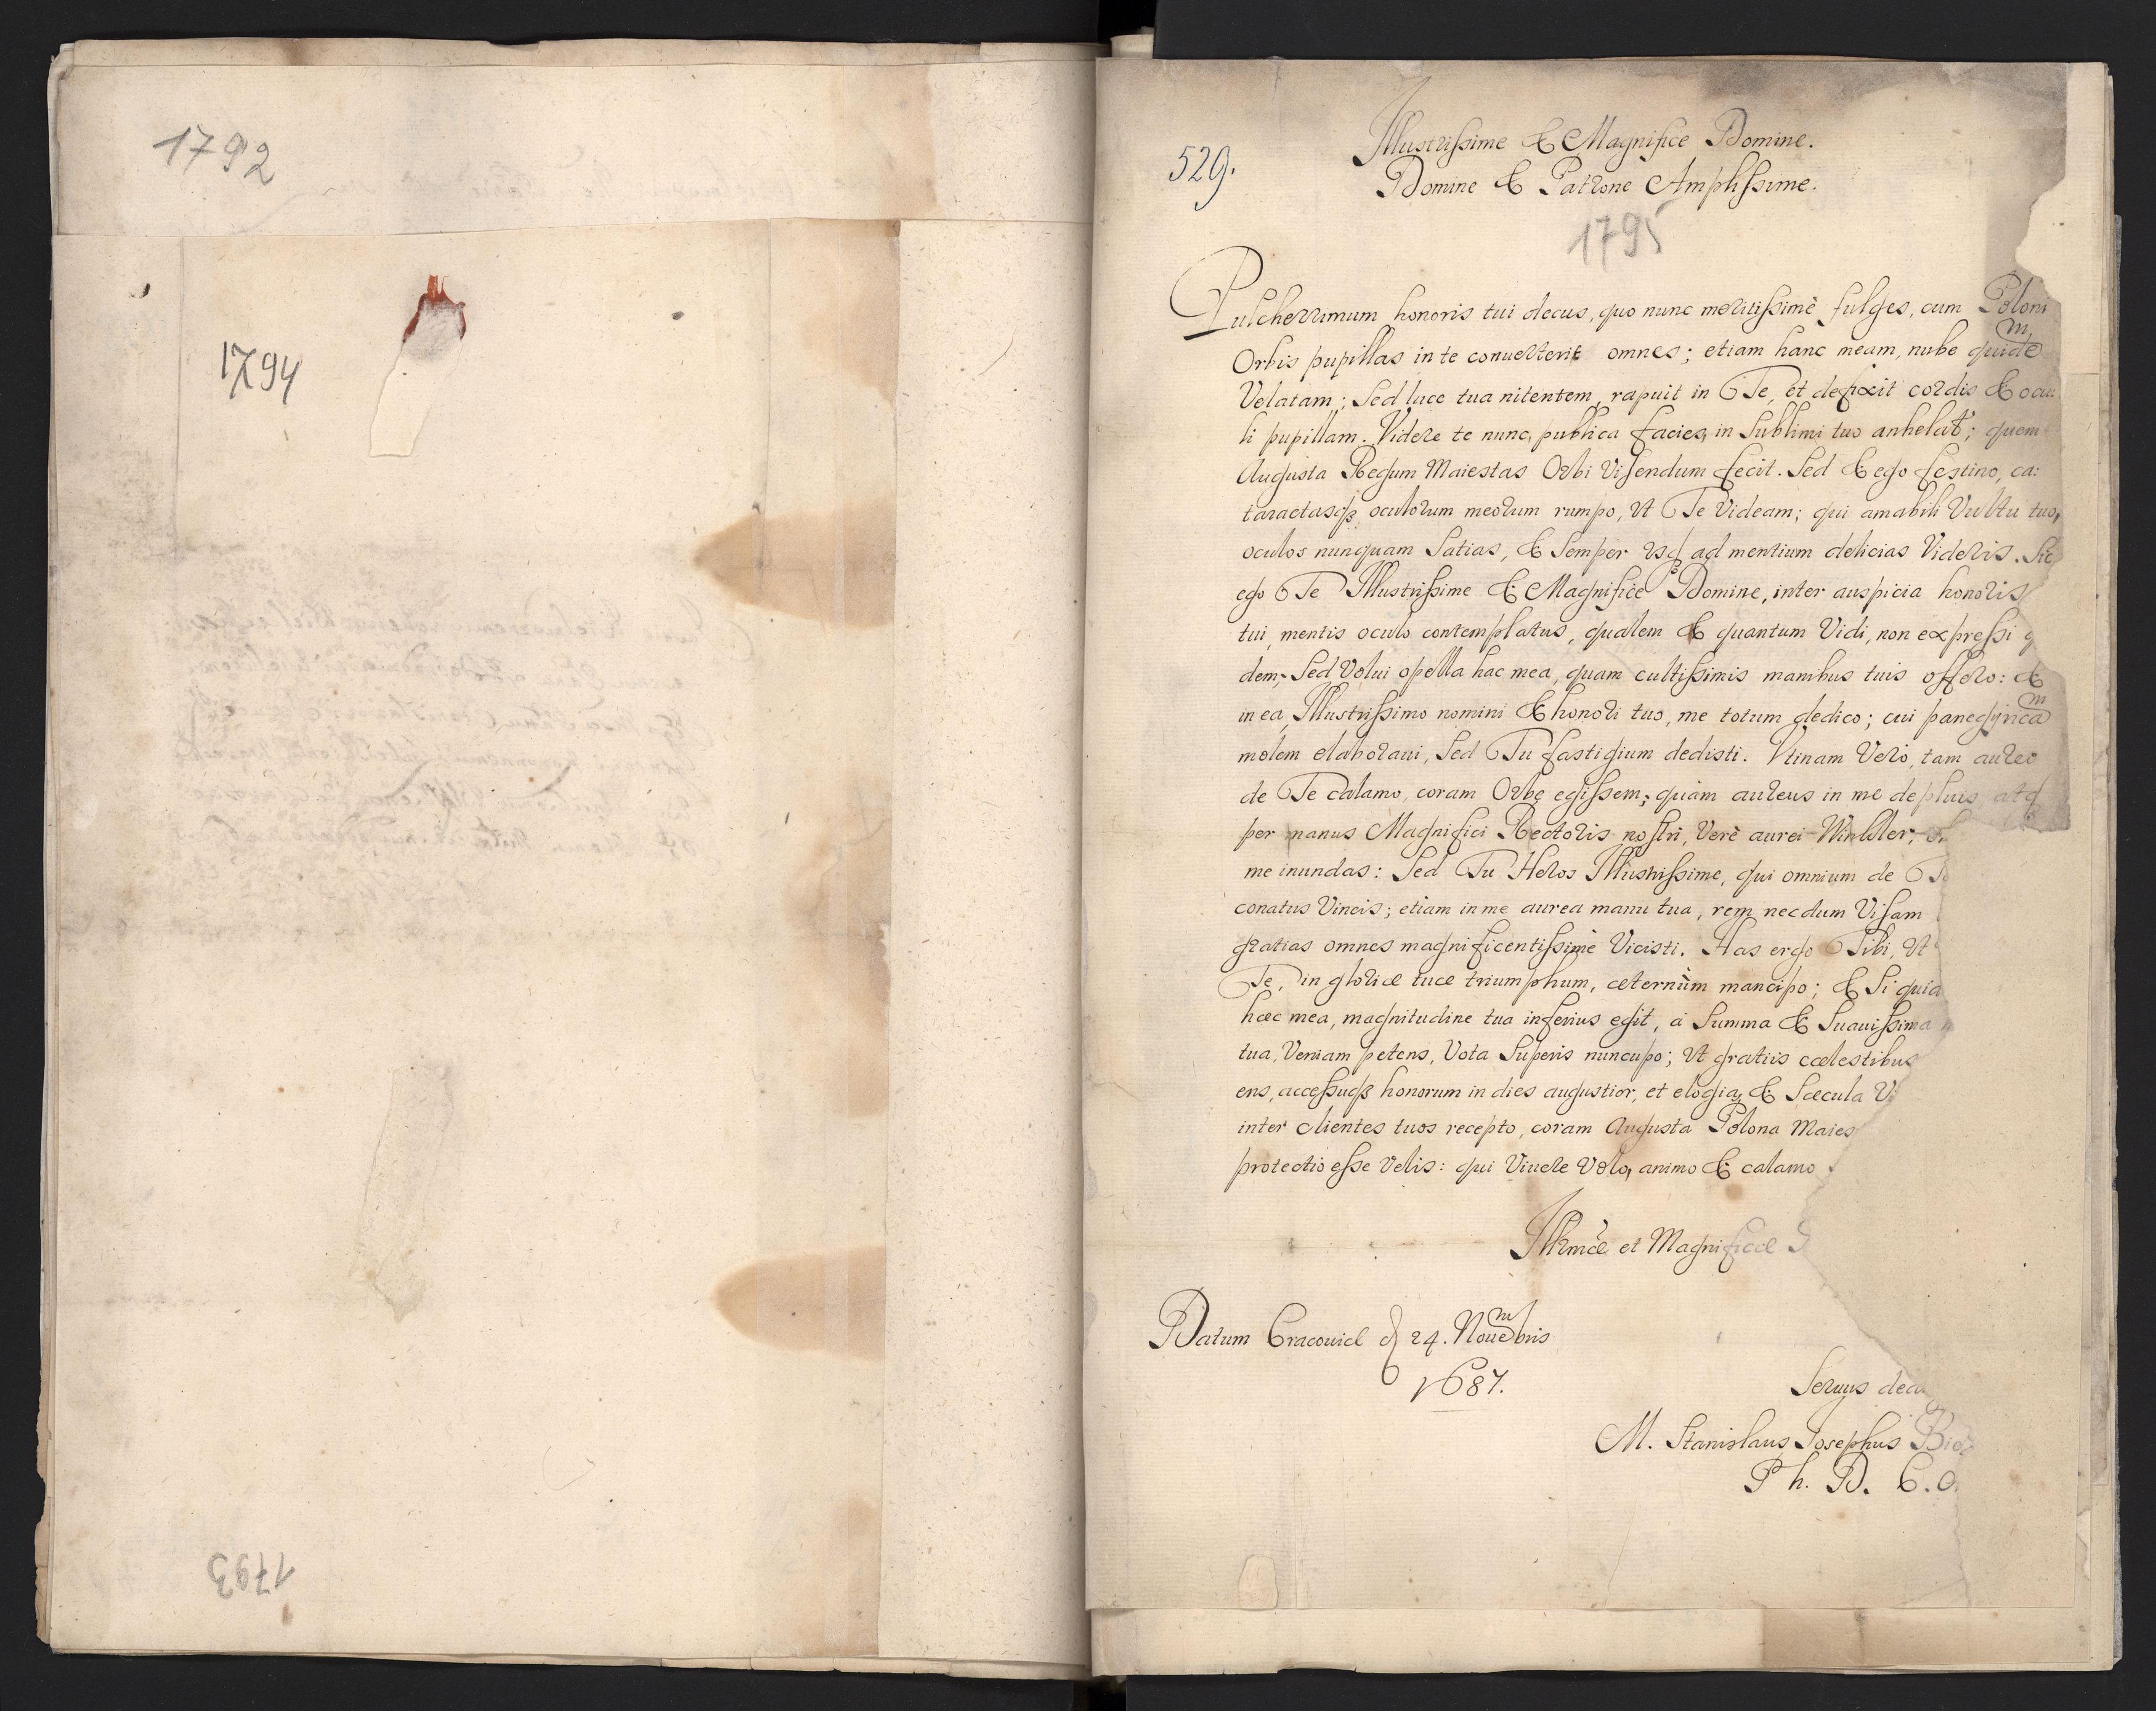 1792
1794
1793
529.
Illustrissime & Magnifice Domine.
Domine & Patrone Amplissime.
1795
Pulcherrimum honoris tui decus, quo nunc meritissimè fulges, cum Poloni
Orbis pupillas in te conuerterit omnes; etiam hanc meam, nube quidem
Velatam; Sed luce tua nitentem, rapuit in Te, et defixit cordis & ocu
li pupillam. Videre te nunc, publica facies, in Sublimi tuo anhelat; quem
Augusta Regum Maiestas Orbi Visendum fecit. Sed & ego festino, ca:
taractasq3 oculorum meorum rumpo, Vt Te Videam; qui amabili Vultu tuo,
oculos nunquam Satias, & Semper Vsq3 ad mentium delicias Videris. Sic
ego Te Illustrissime & Magnifice Domine, inter auspicia honoris
tui, mentis oculo contemplatus, qualem & quantum Vidi, non expressi q
dem; Sed Volui opella hac mea, quam cultissimis manibus tuis offero: &
in ea, Illustrissimo nomini & honori tuo, me totum dedico; cui panegyricam
molem elaboraui, Sed Tu fastigium dedisti. Vtinam Verò, tam aureo
de Te calamo, coram Orbe egissem; quàm aureus in me depluis atq
per manus Magnifici Rectoris nostri, Verè aurei Winkler;
me inundas: Sed Tu Heros Illustrissime, qui omnium de
conatus Vincis; etiam in me aurea manu tua, rem necdum Visam
gratias omnes magnificentissimè Vicisti. Has ergo Tibi, Vt
Te, in gloriæ tuæ triumphum, æternùm mancipo; & Si quid
hæc mea, magnitudine tua inferius egit, à Summa & Suauissima
tua, Veniam petens, Vota Superis nuncupo; Vt gratiis cælestibus
ens, accessuq3 honorum in dies augustior, et elogia, & Sæcula Vi
inter clientes tuos recepto, coram Augusta Polona Maies
protectio esse Velis: qui Viuere Volo, animo & calamo
Illrmæ et Magnificæ D
Datum Cracouiæ d 24. Nouembris
1687.
Seruus deu
M. Stanislaus Josephus Bie
Ph. D. C. O.